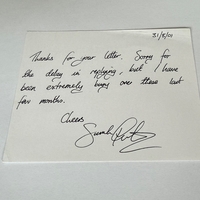 31/8/01
Thanks for your letter. Sorry for
the delay in replying, but I have
been extremely busy over these last
few months.
Cheers